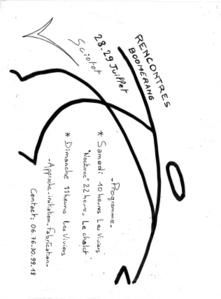 RENCONTRES
BOOMERANG
28.29 Juillet
Sciotot
-Programme-
* Samedi 10 heures Les Viviers
"Nocturne" 22 heures Le chalet
* Dimanche 11 heures Les Viviers
-Approche-initiation-Fabrication-
Contact: 06.76.30.99.18